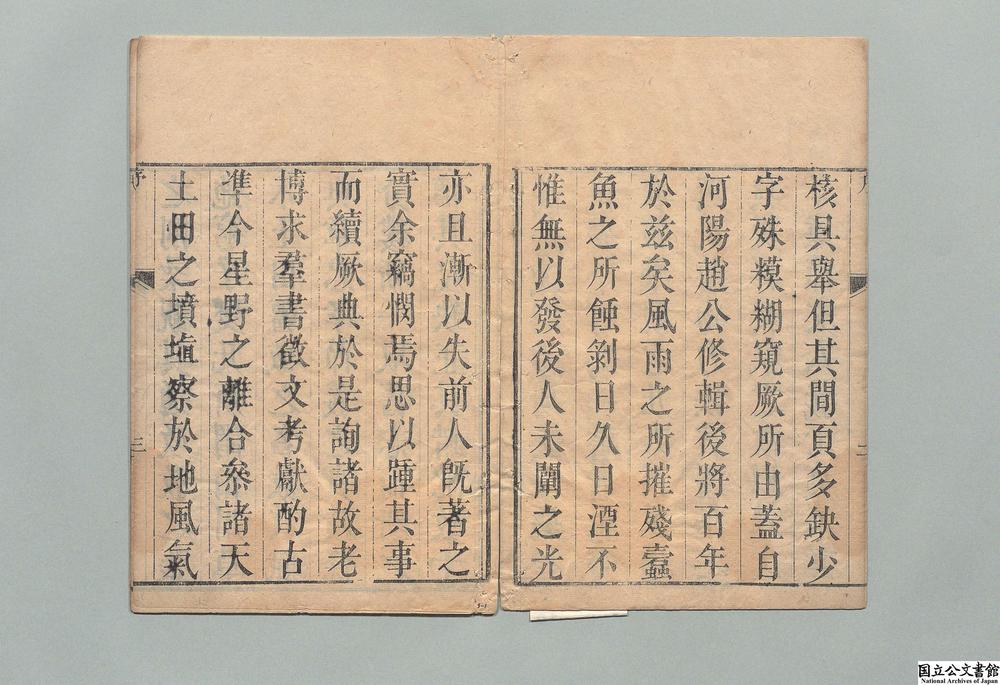 核具舉但其間頁多缺少
字殊糢糊窺厥所由蓋自
河陽趙公修輯後將百年
於兹矣風雨之所摧殘蠧
魚之所蝕剝日久日湮不
惟無以發後人未闡之光
亦且漸以失前人旣著之
實余竊憫焉思以踵其事
而續厥典於是詢諸故老
博求羣書徵文考獻酌古
凖今星野之離合叅諸天
土田之墳埴察於地風氣
序
三
国立公文書館
National Archives of Japan